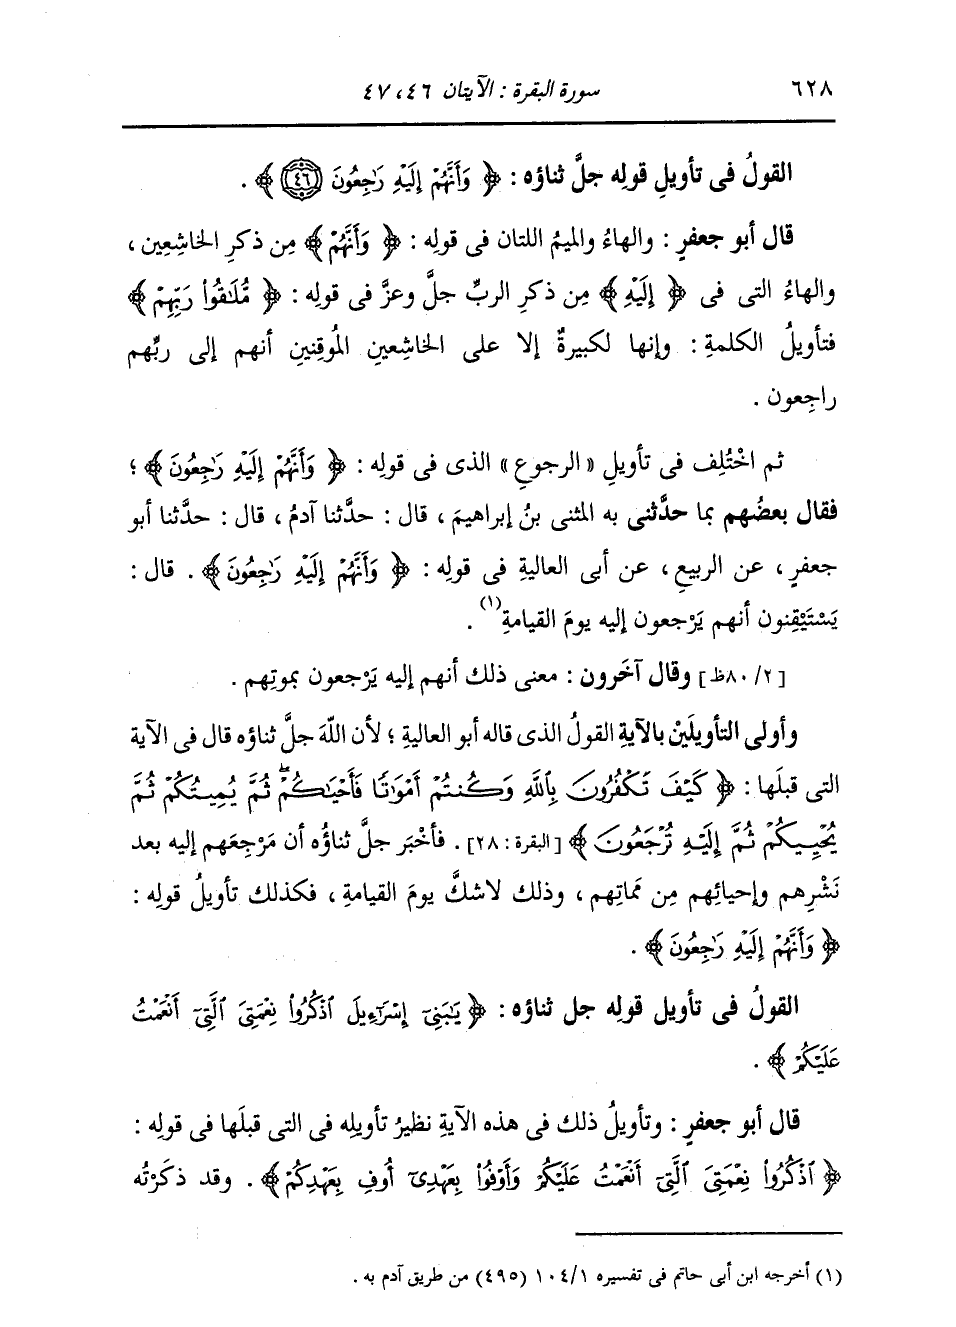 ٦٢٨ سورة البقرة : الآيتان ٤٦ ، ٤٧
القولُ فى تأويلِ قولِه جلَّ ثناؤه : ﴿ وَأَنَّهُمْ إِلَيْهِ رَٰجِعُونَ ٤٦ ﴾ .
قال أبو جعفرٍ : والهاءُ والميمُ اللتان فى قولِه : ﴿ وَأَنَّهُمْ ﴾ مِن ذكرِ الخاشِعِين ،
والهاءُ التى فى ﴿ إِلَيْهِ ﴾ مِن ذكرِ الربِّ جلَّ وعزَّ فى قولِه : ﴿ مُّلَٰقُوا۟ رَبِّهِمْ ﴾
فتأويلُ الكلمةِ : وإنها لكبيرةٌ إلا على الخاشعين المُوقِنين أنهم إلى ربِّهم
راجِعون .
ثم اخْتُلِف فى تأويلِ « الرجوعِ » الذى فى قولِه : ﴿ وَأَنَّهُمْ إِلَيْهِ رَٰجِعُونَ ﴾ ؛
فقال بعضُهم بما حدَّثنى به المثنى بنُ إبراهيمَ ، قال : حدَّثنا آدمُ ، قال : حدَّثنا أبو
جعفرٍ ، عن الربيعِ ، عن أبى العاليةِ فى قولِه : ﴿ وَأَنَّهُمْ إِلَيْهِ رَٰجِعُونَ ﴾ . قال :
يَسْتَيْقِنون أنهم يَرْجعون إليه يومَ القيامةِ (١) .
[ ٢/ ٨٠ظ] وقال آخَرون : معنى ذلك أنهم إليه يَرْجعون بموتِهم .
وأولى التأويلَيْن بالآيةِ القولُ الذى قاله أبو العاليةِ ؛ لأن اللَّهَ جلَّ ثناؤه قال فى الآية
التى قبلَها : ﴿ كَيْفَ تَكْفُرُونَ بِٱللَّهِ وَكُنتُمْ أَمْوَٰتًا فَأَحْيَٰكُمْ ۖ ثُمَّ يُمِيتُكُمْ ثُمَّ
يُحْيِيكُمْ ثُمَّ إِلَيْهِ تُرْجَعُونَ ﴾ [ البقرة : ٢٨] . فأخْبَر جلَّ ثناؤُه أن مَرْجِعَهم إليه بعد
نَشْرِهم وإحيائِهم مِن مَماتِهم ، وذلك لاشكَّ يومَ القيامةِ ، فكذلك تأويلُ قولِه :
﴿ وَأَنَّهُمْ إِلَيْهِ رَٰجِعُونَ ﴾ .
القولُ فى تأويل قولِه جل ثناؤه : ﴿ يَٰبَنِىٓ إِسْرَٰٓءِيلَ ٱذْكُرُوا۟ نِعْمَتِىَ ٱلَّتِىٓ أَنْعَمْتُ
عَلَيْكُمْ ﴾ .
قال أبو جعفرٍ : وتأويلُ ذلك فى هذه الآيةِ نظيرُ تأويلِه فى التى قبلَها فى قولِه :
﴿ ٱذْكُرُوا۟ نِعْمَتِىَ ٱلَّتِىٓ أَنْعَمْتُ عَلَيْكُمْ وَأَوْفُوا۟ بِعَهْدِىٓ أُوفِ بِعَهْدِكُمْ ﴾ . وقد ذكَرْتُه
(١) أخرجه ابن أبى حاتم فى تفسيره ١٠٤/١ (٤٩٥) من طريق آدم به .